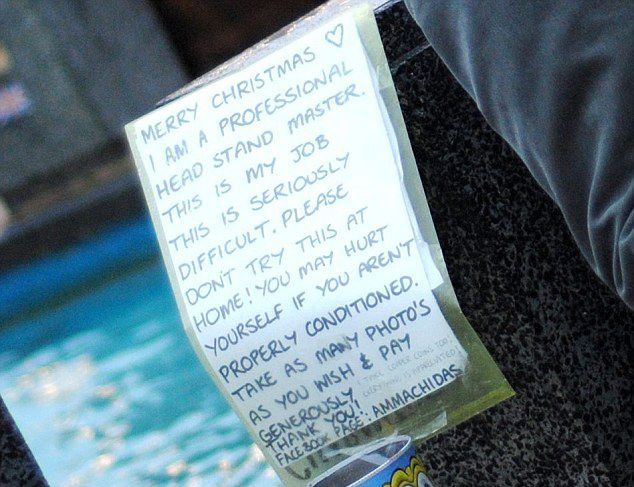 MERRY CHRISTMAS ♡
I AM A PROFESSIONAL
HEAD STAND MASTER.
THIS IS MY JOB
THIS IS SERIOUSLY
DIFFICULT. PLEASE
DON'T TRY THIS AT
HOME! YOU MAY HURT
YOURSELF IF YOU AREN'T
PROPERLY CONDITIONED.
TAKE AS MANY PHOTO'S
AS YOU WISH & PAY
GENEROUSLY
I TAKE COPPER COINS TOO!
EVERYTHING IS APPRECIATED
THANK YOU!.
FACEBOOK PAGE: AMMACHIDAS